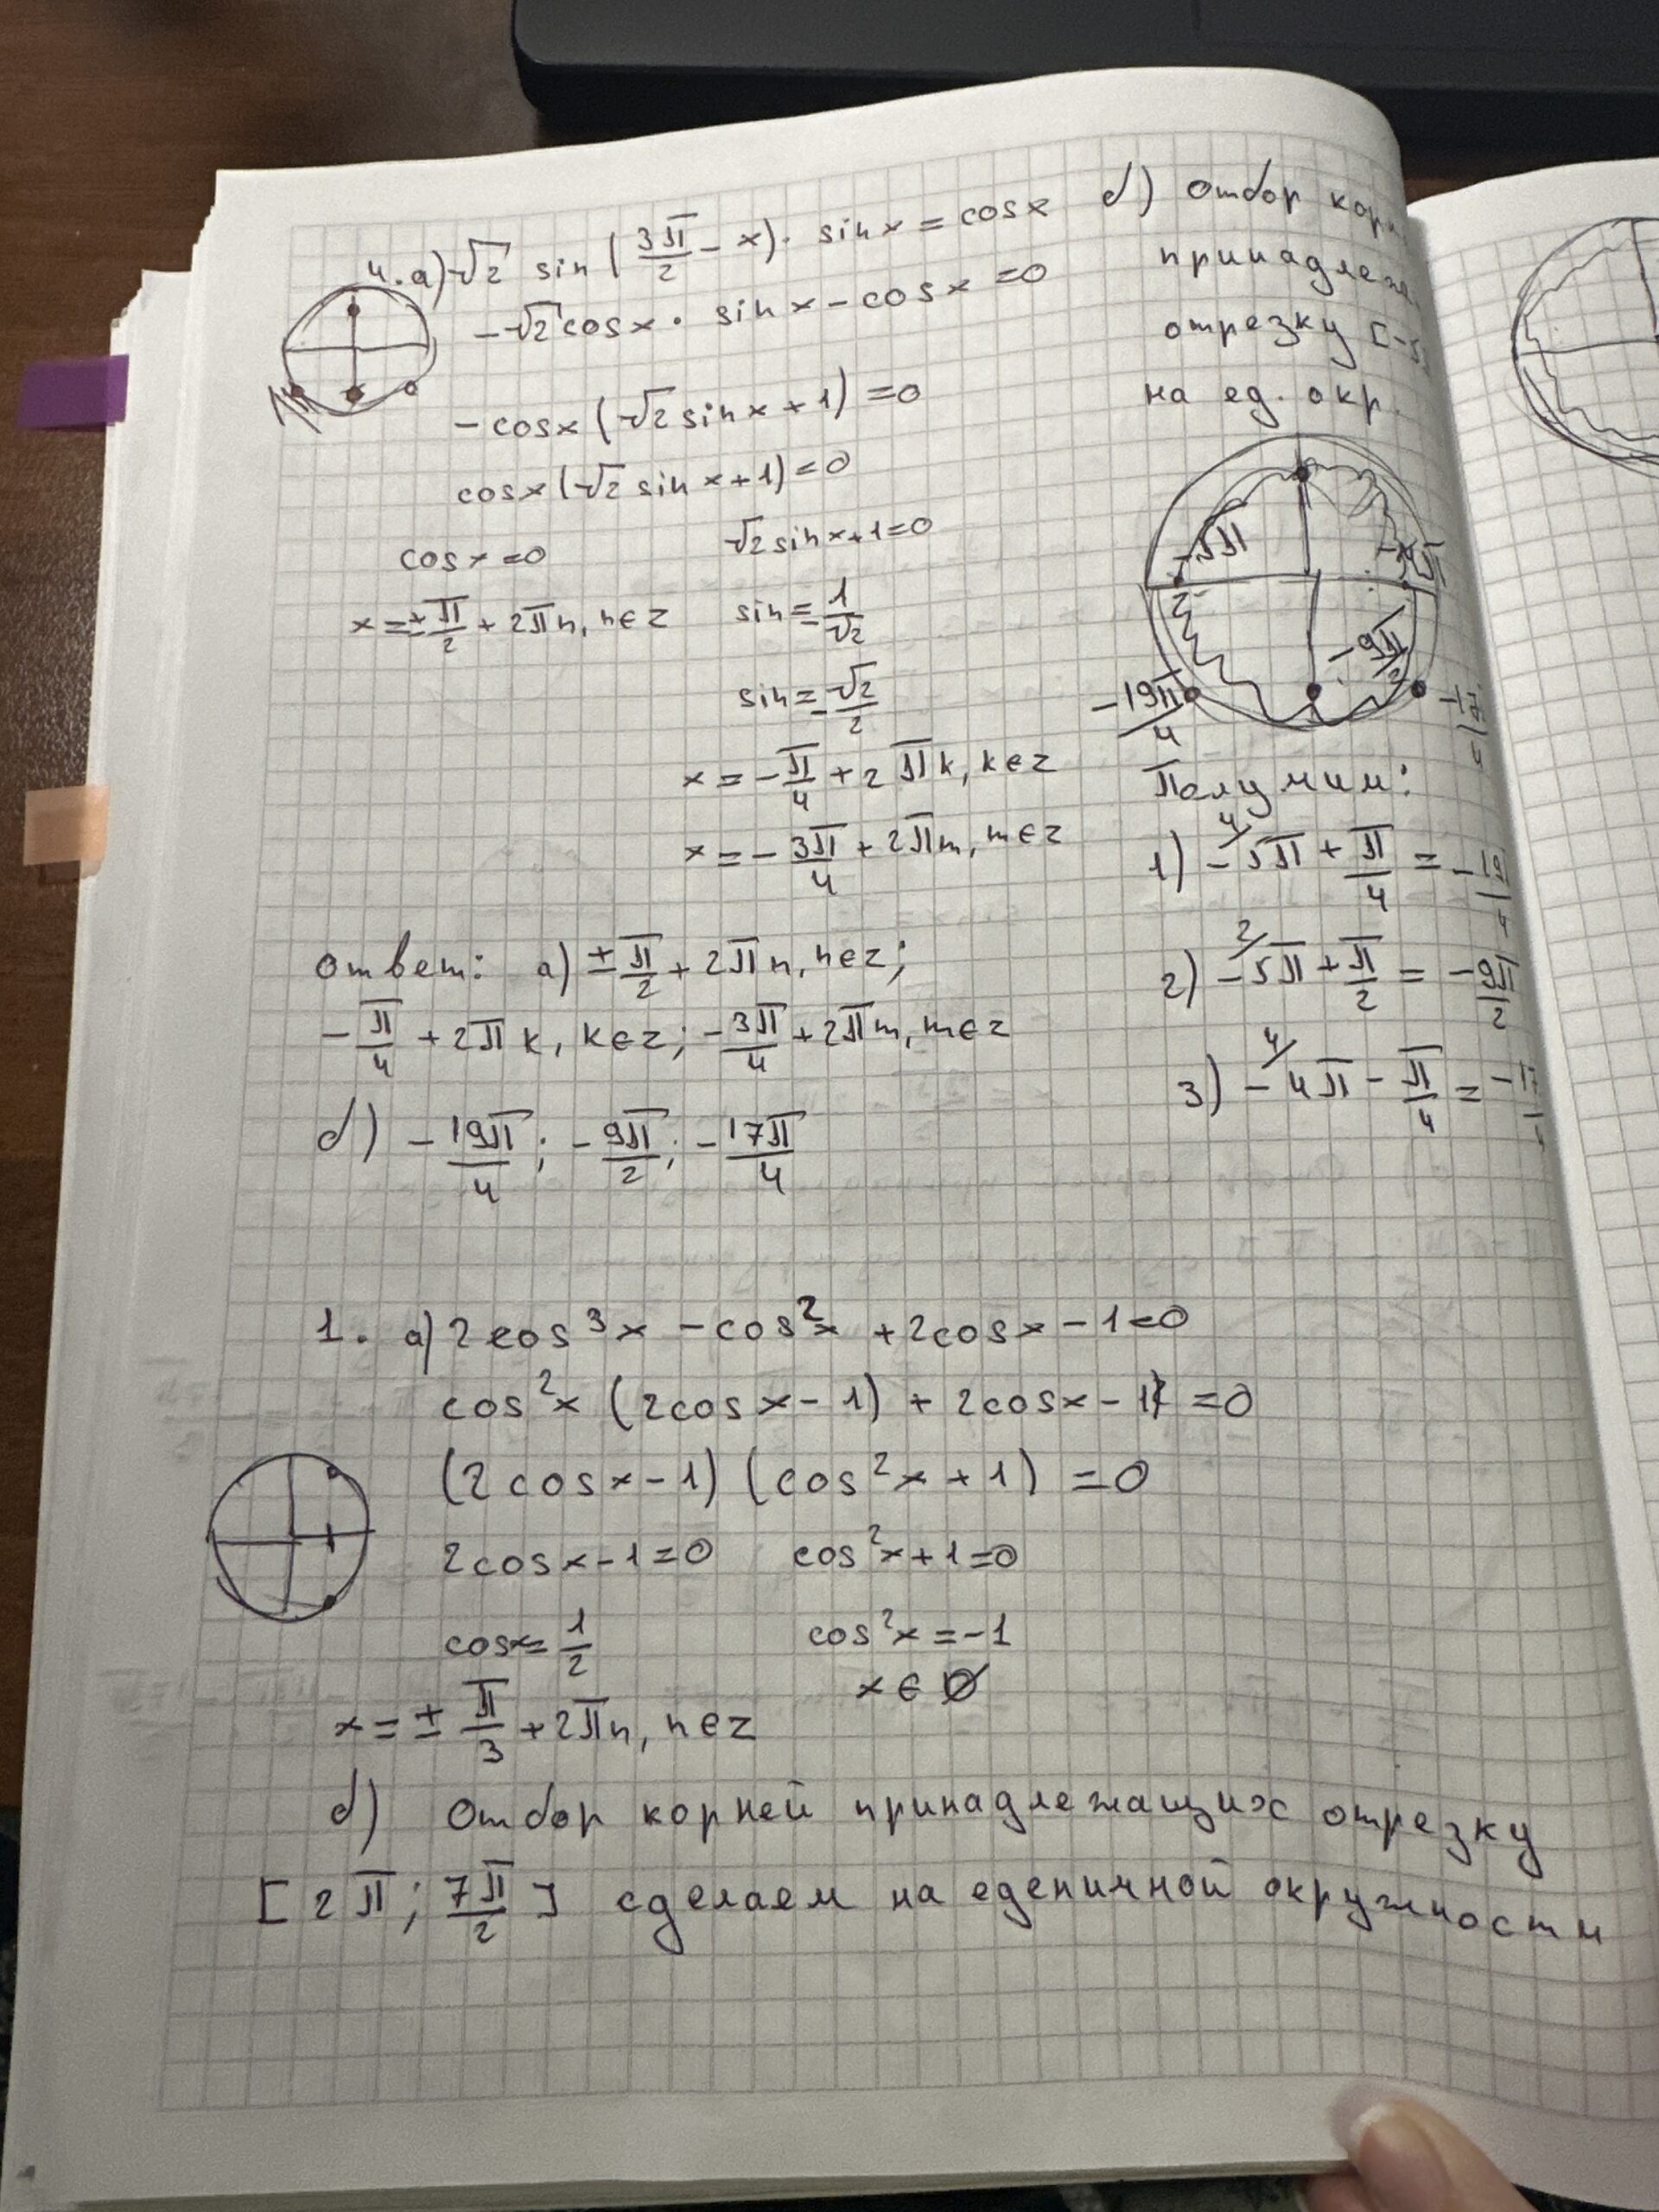 4. а) √2 sin (3π/2 − x) · sin x = cos x
−√2 cos x · sin x − cos x = 0
−cos x (√2 sin x + 1) = 0
cos x (√2 sin x + 1) = 0
cos x = 0    √2 sin x + 1 = 0
x = ± π/2 + 2πn, n∈z    sin = − 1/√2
sin = − √2/2
x = − π/4 + 2πk, k∈z
x = − 3π/4 + 2πm, m∈z
ответ: а) ± π/2 + 2πn, n∈z;
− π/4 + 2πk, k∈z; − 3π/4 + 2πm, m∈z
б) − 19π/4; − 9π/2; − 17π/4
б) Отбор
отрезку
на ед. окр.
−5π
−4π
−9π/2
−19π/4
Получим:
1) −5π + π/4 = −19
2) −5π + π/2 = −9π/2
3) −4π − π/4 = −17
1. а) 2cos³x − cos²x + 2cosx − 1 = 0
cos²x (2cosx − 1) + 2cosx − 1 = 0
(2cosx − 1) (cos²x + 1) = 0
2cosx − 1 = 0    cos²x + 1 = 0
cosx = 1/2    cos²x = −1
x ∈ ∅
x = ± π/3 + 2πn, n∈z
б) Отбор корней принадлежащих отрезку
[2π; 7π/2] сделаем на еденичной окружности